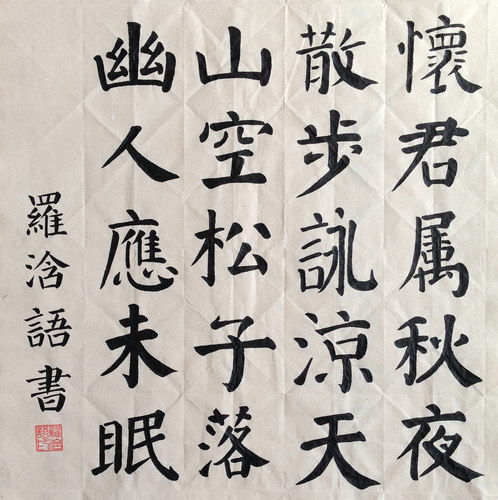 懷君属秋夜
散步詠涼天
山空松子落
幽人應未眠
羅浛語書